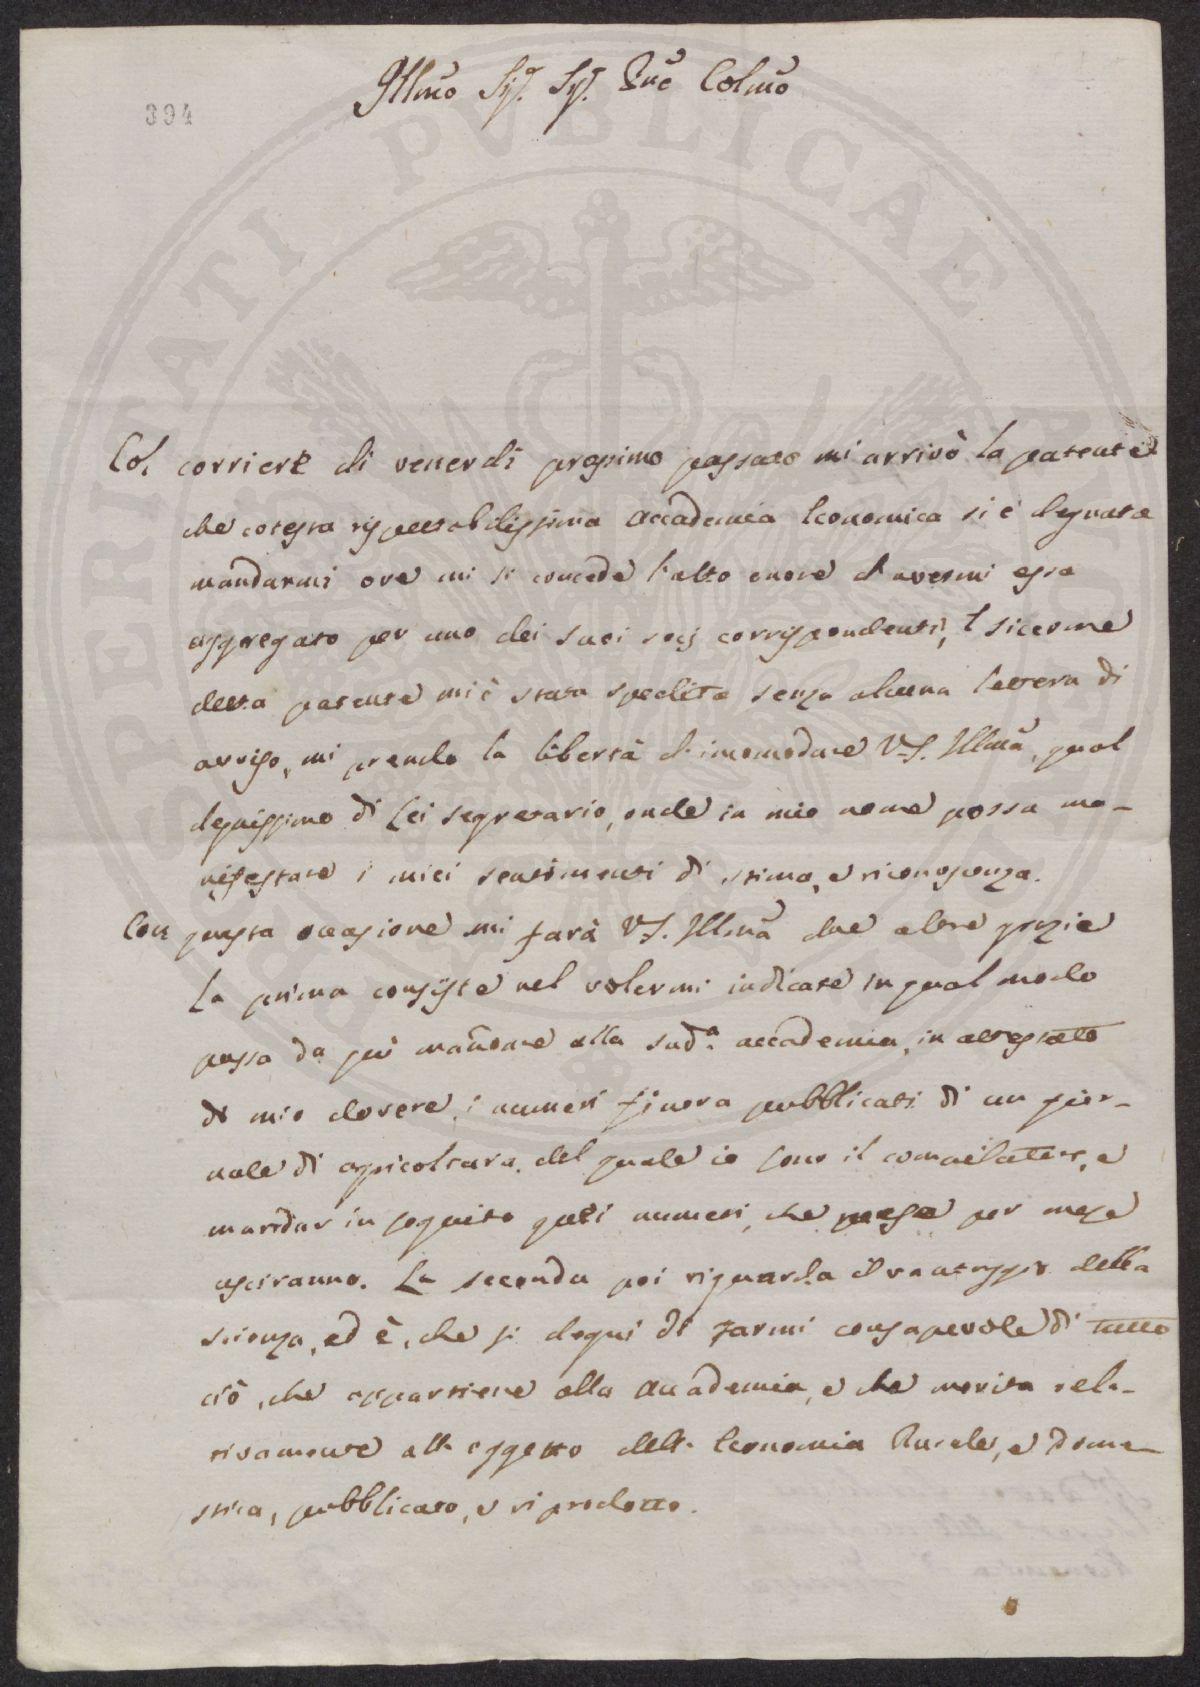 394
Illmo Sig. Sig. Pne Colmo
Col corriere di venerdì prossimo passato mi arrivò la patente
che cotesta rispettabilissima accademia Economica si è degnata
mandarmi ove mi si concede l'alto onore d'avermi essa
aggregato per uno dei suoi socj corrispondenti, e siccome
detta patente mi è stata spedita senza alcuna lettera di
avviso, mi prendo la libertà d'incomodare V.S. Illma, qual
degnissimo di Lei segretario, onde in mio nome possa ma-
nifestare i miei sentimenti di stima, e riconoscenza.
Con questa occasione mi farà V.S. Illma due altre grazie
La prima consiste nel volermi indicare in qual modo
possa da qui mandare alla sud.a accademia, in attestato
di mio dovere, i numeri finora pubblicati di un gior-
nale di agricoltura, del quale io sono il compilatore, e
mandar in seguito quei numeri, che mese per mese
usciranno. La seconda poi riguarda il vantaggio della
scienza, ed è, che si degni di farmi consapevole di tutto
ciò, che appartiene alla accademia, e che merita rela-
tivamente all' oggetto dell' Economia Rurale, e dome-
stica, pubblicato, e riprodotto.
PROSPERITATI PVBLICAE